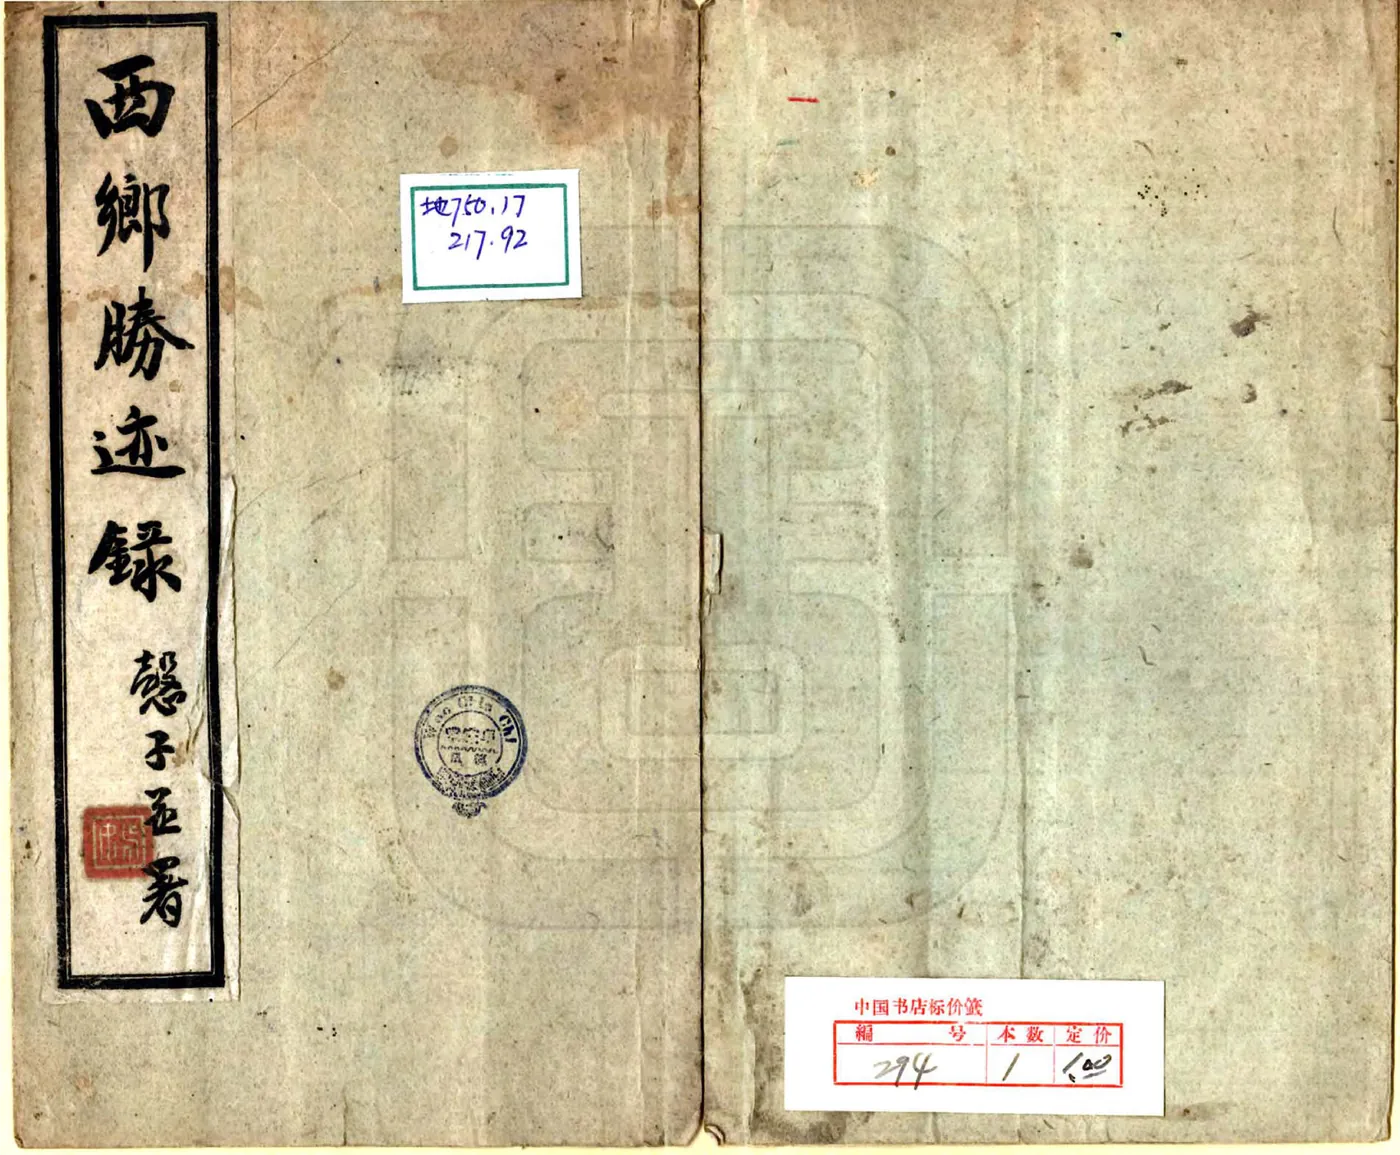 西鄉勝迹錄
子並署
地750.17
217.92
Woo Chi
中国书店标价籤
編 号 本数 定价
294 1 1.00